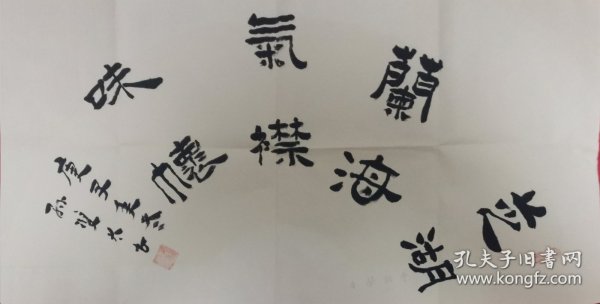 芝蘭氣味
湖海襟懷
庚子夏
孔夫子旧书网
www.kongfz.com